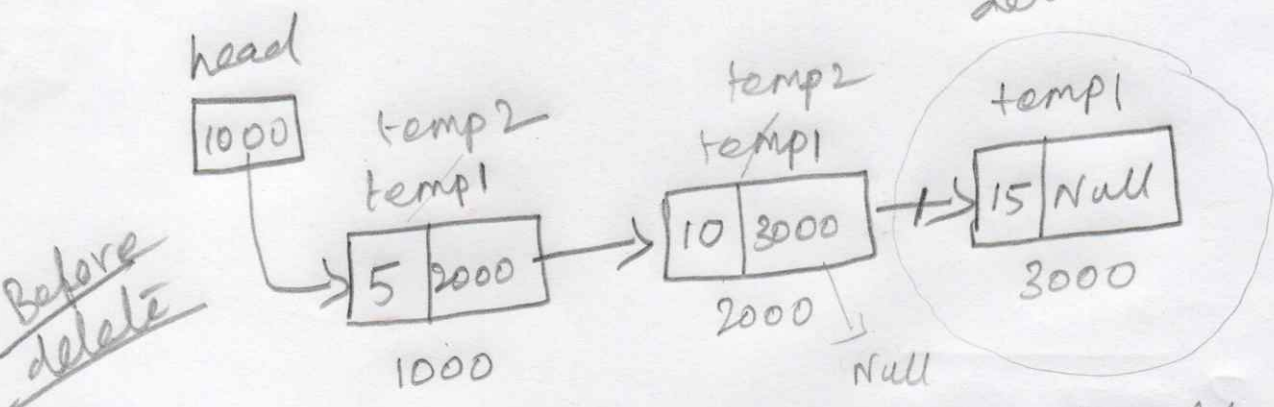 head
1000
temp2
temp1
5 2000
1000
temp2
temp1
10 3000
2000
Null
temp1
15 Null
3000
Before
delete